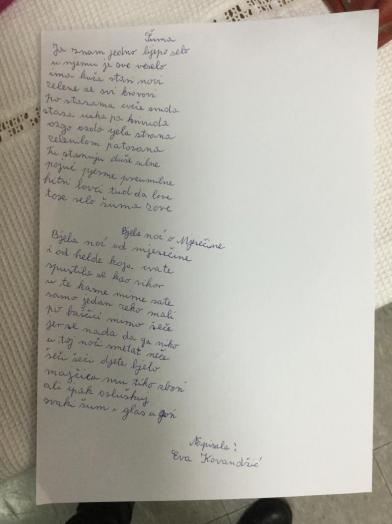 Šuma
Ja znam jedno ljepo selo
u njemu je sve veselo
ima kuča stan novi
zelene se svi krovovi
po stazama cviče svuda
staza uska pa krivuda
ozgo ozdo cjela strana
zelenilom patosana
Tu stanuju duše silne
pojuć pjesme preumilne
hitri lovci tud da love
to se selo šuma zove
Bjela noć o Mjesečine
Bjela noć od mjesečine
i od helde koja cvate
spustila se kao vihor
u te kasne mirne sate
samo jedan zeko mali
po bašćici mirno šeče
jer se nada da ga niko
u toj noči smetat neče
šeči šeči djete bjelo
majčica mu tiho zbori
ali ipak osluškuj
svaki šum i glas u gori
Napisala:
Eva Kovandžić